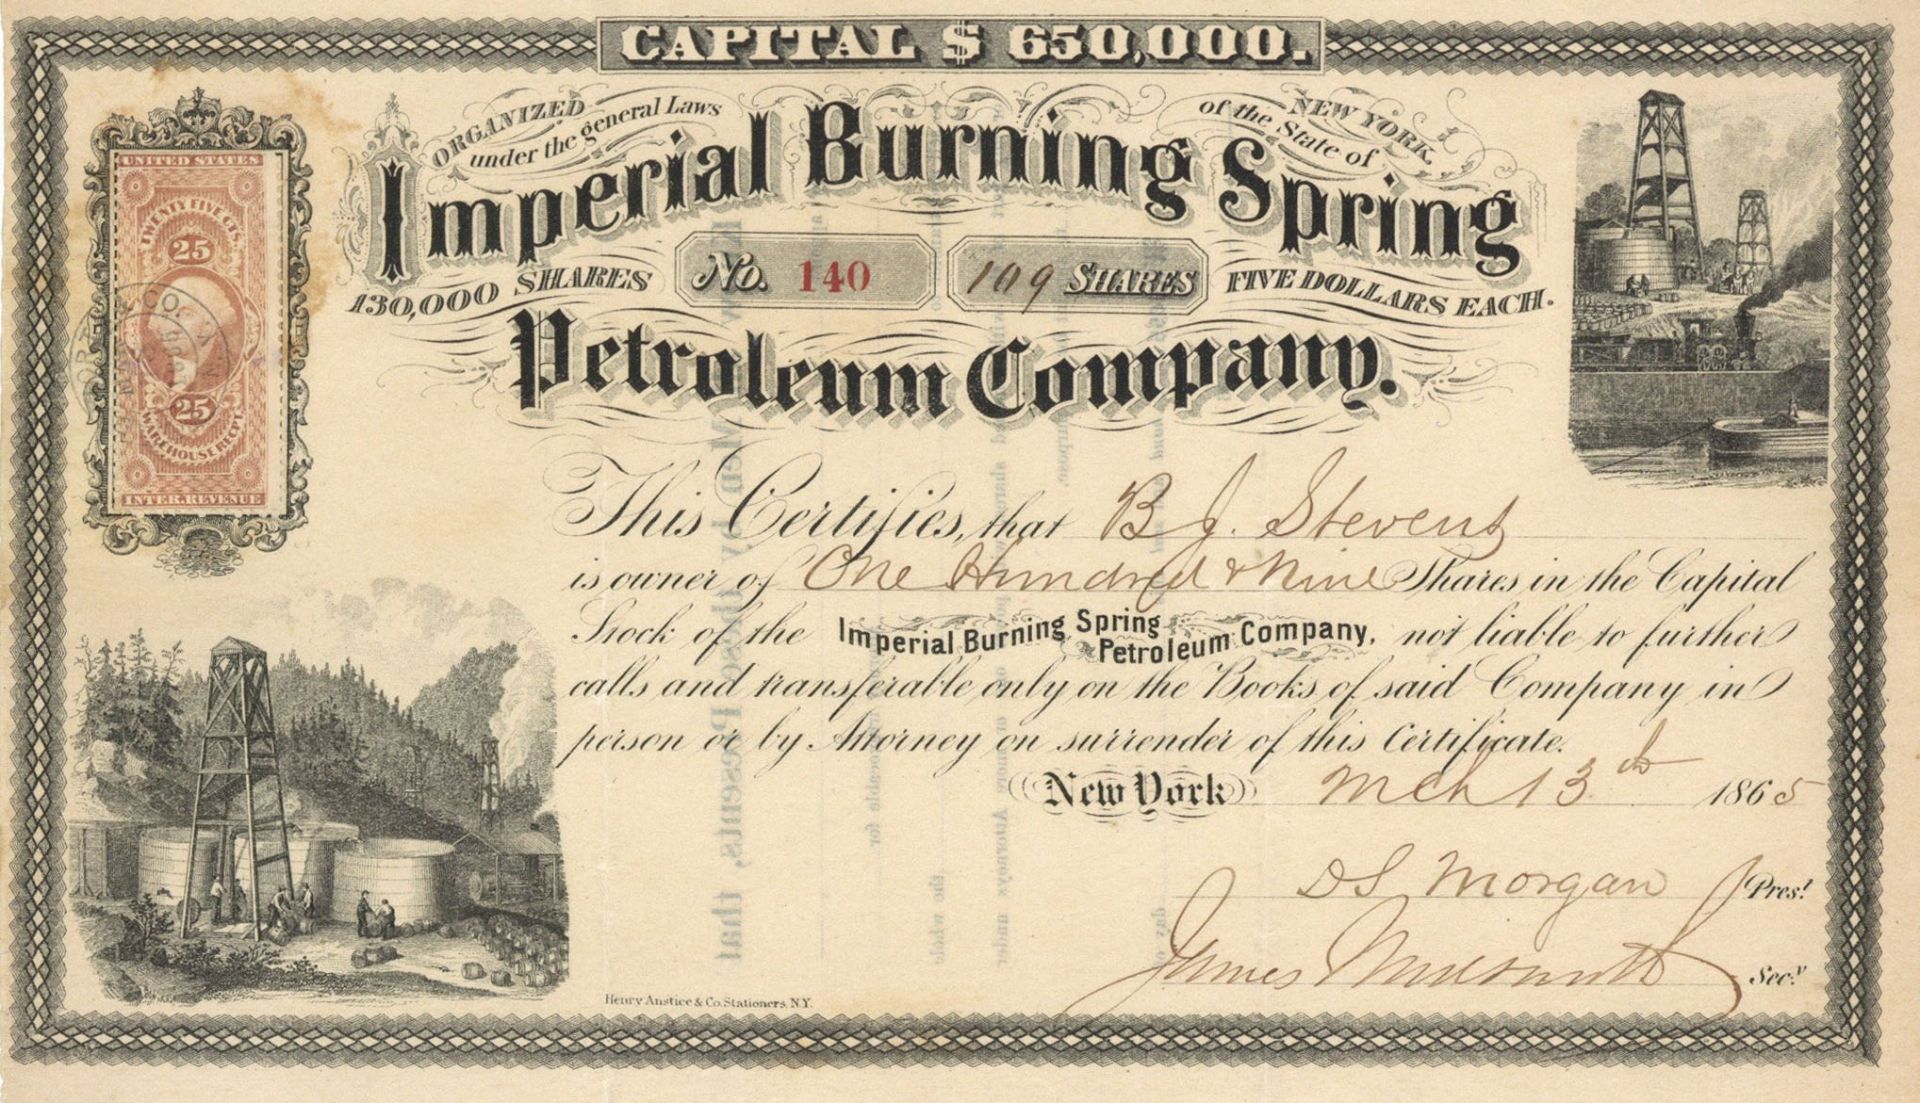 CAPITAL $ 650,000.
ORGANIZED under the general Laws of the State of NEW YORK.
Imperial Burning Spring
130,000 SHARES No. 140 109 SHARES FIVE DOLLARS EACH.
Petroleum Company.
UNITED STATES
TWENTY FIVE CTS.
25
25
WAREHOUSE RECPT.
INTER. REVENUE
This Certifies, that B J. Stevens
is owner of One Hundred & Nine Shares in the Capital
Stock of the Imperial Burning Spring Petroleum Company, not liable to further
calls and transferable only on the Books of said Company in
person or by Attorney on surrender of this Certificate.
New York Mch 13th 1865
D S Morgan Prest
James Sec.y
Henry Anstice & Co. Stationers, N.Y.